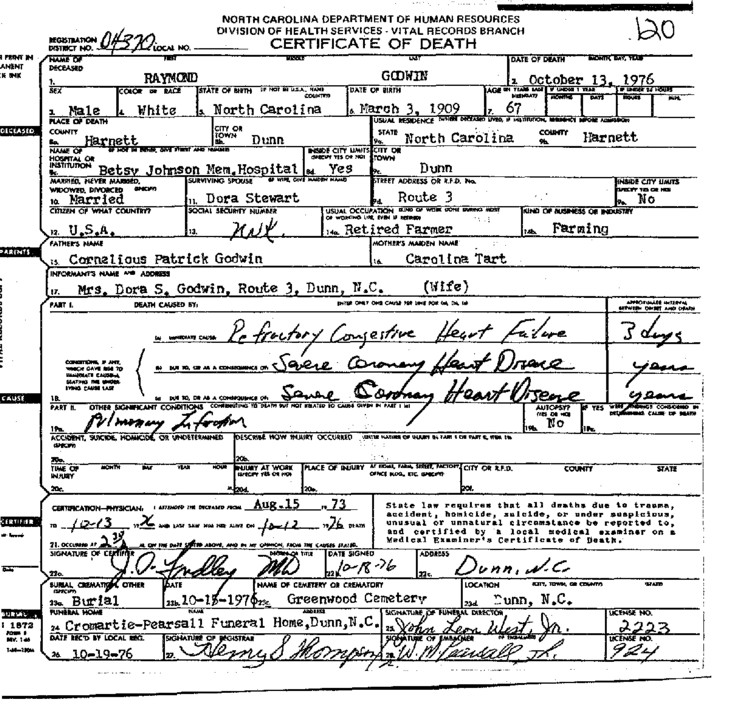 NORTH CAROLINA DEPARTMENT OF HUMAN RESOURCES
DIVISION OF HEALTH SERVICES - VITAL RECORDS BRANCH
120
REGISTRATION DISTRICT NO. 04370 LOCAL NO.
CERTIFICATE OF DEATH
NAME OF DECEASED FIRST MIDDLE LAST DATE OF DEATH MONTH, DAY, YEAR
1. RAYMOND GODWIN 2. October 13, 1976
SEX COLOR OR RACE STATE OF BIRTH IF NOT IN U.S.A., NAME COUNTRY DATE OF BIRTH AGE IF UNDER 1 YEAR IF UNDER 24 HOURS
MONTHS DAYS HOURS MIN.
3. Male 4. White 5. North Carolina 6. March 3, 1909 7. 67
DECEASED
PLACE OF DEATH USUAL RESIDENCE
COUNTY CITY OR TOWN STATE COUNTY
8a. Harnett 8b. Dunn 9a. North Carolina 9b. Harnett
NAME OF HOSPITAL OR INSTITUTION INSIDE CITY LIMITS (SPECIFY YES OR NO) CITY OR TOWN
8c. Betsy Johnson Mem. Hospital 8d. Yes 9c. Dunn
MARRIED, NEVER MARRIED, WIDOWED, DIVORCED (SPECIFY) SURVIVING SPOUSE IF WIFE, GIVE MAIDEN NAME STREET ADDRESS OR R.F.D. No. INSIDE CITY LIMITS (SPECIFY YES OR NO)
10. Married 11. Dora Stewart 9d. Route 3 9e. No
CITIZEN OF WHAT COUNTRY? SOCIAL SECURITY NUMBER USUAL OCCUPATION KIND OF BUSINESS OR INDUSTRY
12. U.S.A. 13. 14a. Retired Farmer 14b. Farming
PARENTS
FATHER'S NAME MOTHER'S MAIDEN NAME
15. Cornelious Patrick Godwin 16. Carolina Tart
INFORMANT'S NAME AND ADDRESS
17. Mrs. Dora S. Godwin, Route 3, Dunn, N.C. (Wife)
PART I. DEATH CAUSED BY: ENTER ONLY ONE CAUSE PER LINE FOR (a), (b), (c) APPROXIMATE INTERVAL BETWEEN ONSET AND DEATH
(a) IMMEDIATE CAUSE Refractory Congestive Heart Failure 3 days
CONDITIONS, IF ANY, WHICH GAVE RISE TO IMMEDIATE CAUSE(a), STATING THE UNDERLYING CAUSE LAST
(b) DUE TO, OR AS A CONSEQUENCE OF: Severe Coronary Heart Disease years
CAUSE
18. (c) DUE TO, OR AS A CONSEQUENCE OF: Severe Coronary Heart Disease years
PART II. OTHER SIGNIFICANT CONDITIONS CONTRIBUTING TO DEATH BUT NOT RELATED TO CAUSE GIVEN IN PART I (a) AUTOPSY? IF YES WERE FINDINGS CONSIDERED IN DETERMINING CAUSE OF DEATH
19a. Pulmonary Infarction 19b. No 19c.
ACCIDENT, SUICIDE, HOMICIDE, OR UNDETERMINED (SPECIFY) DESCRIBE HOW INJURY OCCURRED
20a. 20b.
TIME OF INJURY MONTH DAY YEAR HOUR INJURY AT WORK (SPECIFY YES OR NO) PLACE OF INJURY AT HOME, FARM, STREET, FACTORY, OFFICE BLDG., ETC. (SPECIFY) CITY OR R.F.D. COUNTY STATE
20c. 20d. 20e.
CERTIFICATION—PHYSICIAN: I ATTENDED THE DECEASED FROM Aug. 15 19 73
TO 10-13 1976 AND LAST SAW HIM/HER ALIVE ON 10-12 1976 DEATH
21. OCCURRED AT M., ON THE DATE STATED ABOVE, AND IN MY OPINION, FROM THE CAUSES STATED.
State law requires that all deaths due to trauma,
accident, homicide, suicide, or under suspicious,
unusual or unnatural circumstance be reported to,
and certified by a local medical examiner on a
Medical Examiner's Certificate of Death.
CERTIFIER
SIGNATURE OF CERTIFIER DEGREE OR TITLE DATE SIGNED ADDRESS
22a. MD 22b. 10-18-76 22c. Dunn, N.C.
BURIAL, CREMATION, OTHER (SPECIFY) DATE NAME OF CEMETERY OR CREMATORY LOCATION CITY, TOWN, OR COUNTY STATE
23a. Burial 23b. 10-15-1976 23c. Greenwood Cemetery 23d. Dunn, N.C.
FUNERAL HOME ADDRESS SIGNATURE OF FUNERAL DIRECTOR LICENSE NO.
24. Cromartie-Pearsall Funeral Home, Dunn, N.C. 25. John Leon West, Jr. 2223
DATE REC'D BY LOCAL REG. SIGNATURE OF REGISTRAR SIGNATURE OF EMBALMER LICENSE NO.
26. 10-19-76 27. Henry S Thompson W. M. Pearsall, Jr. 924
1872
FORM 8